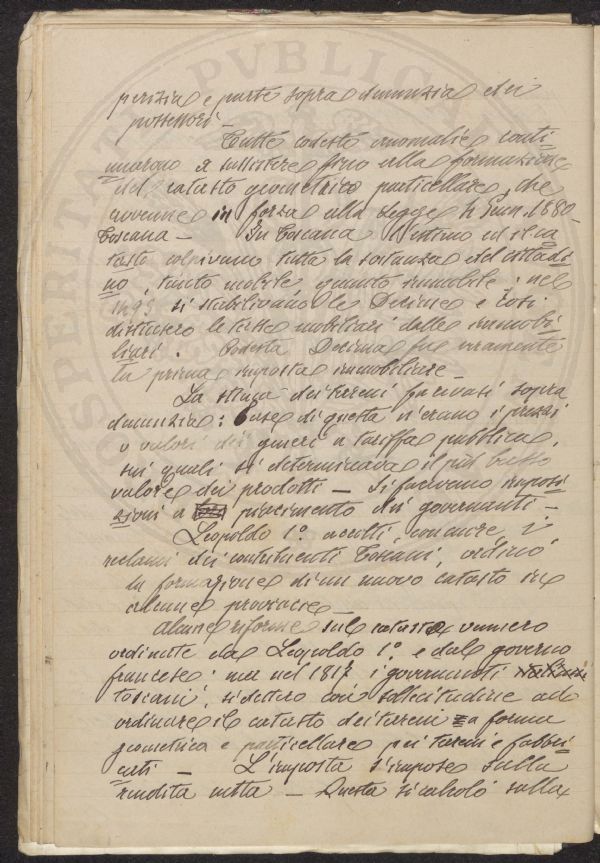 perizia e parte sopra denunzia dei
possessori —
Tutte codeste anomalie conti
nuarono a sussistere fino alla formazione
del catasto geometrico particellare, che
avvenne in forza alla legge 4 Genn. 1880 —
Toscana — In Toscana l'estimo ed il ca
tasto colpivano tutta la sostanza del cittadi
no, tanto mobile quanto immobile; nel
1495 si stabilivano le Decime e così
distinsero le tasse mobiliari dalle immobi
liari. Codesta Decima fu veramente
la prima imposta immobiliare —
La stima dei terreni facevasi sopra
denunzia: base di questa n'erano i prezzi
o valori dei generi a tariffa pubblica,
sui quali si determinava il più basso
valore dei prodotti — Si facevano imposi
zioni a piacimento dei governanti —
Leopoldo 1º accolti, i
reclami dei contribuenti Toscani, ordinò
la formazione di un nuovo catasto in
alcune provincie —
Alcune riforme sul catasto vennero
ordinate da Leopoldo 1º e dal governo
francese: ma nel 1817 i governanti
toscani, si dettero con sollecitudine ad
ordinare il catasto dei terreni a forma
geometrica e particellare pei terreni e fabbri
cati — L'imposta s'impose sulla
rendita netta — Questa si calcolò sulla